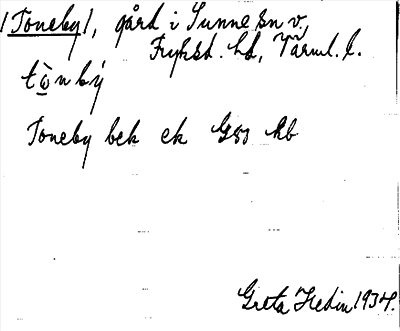 /Toneby/, gård i Sunne sn v.,
Fryksd. hd, Värml. l.
tὼ̲n bý
Toneby bek ek Gzo kb
Greta Hedin 1934.